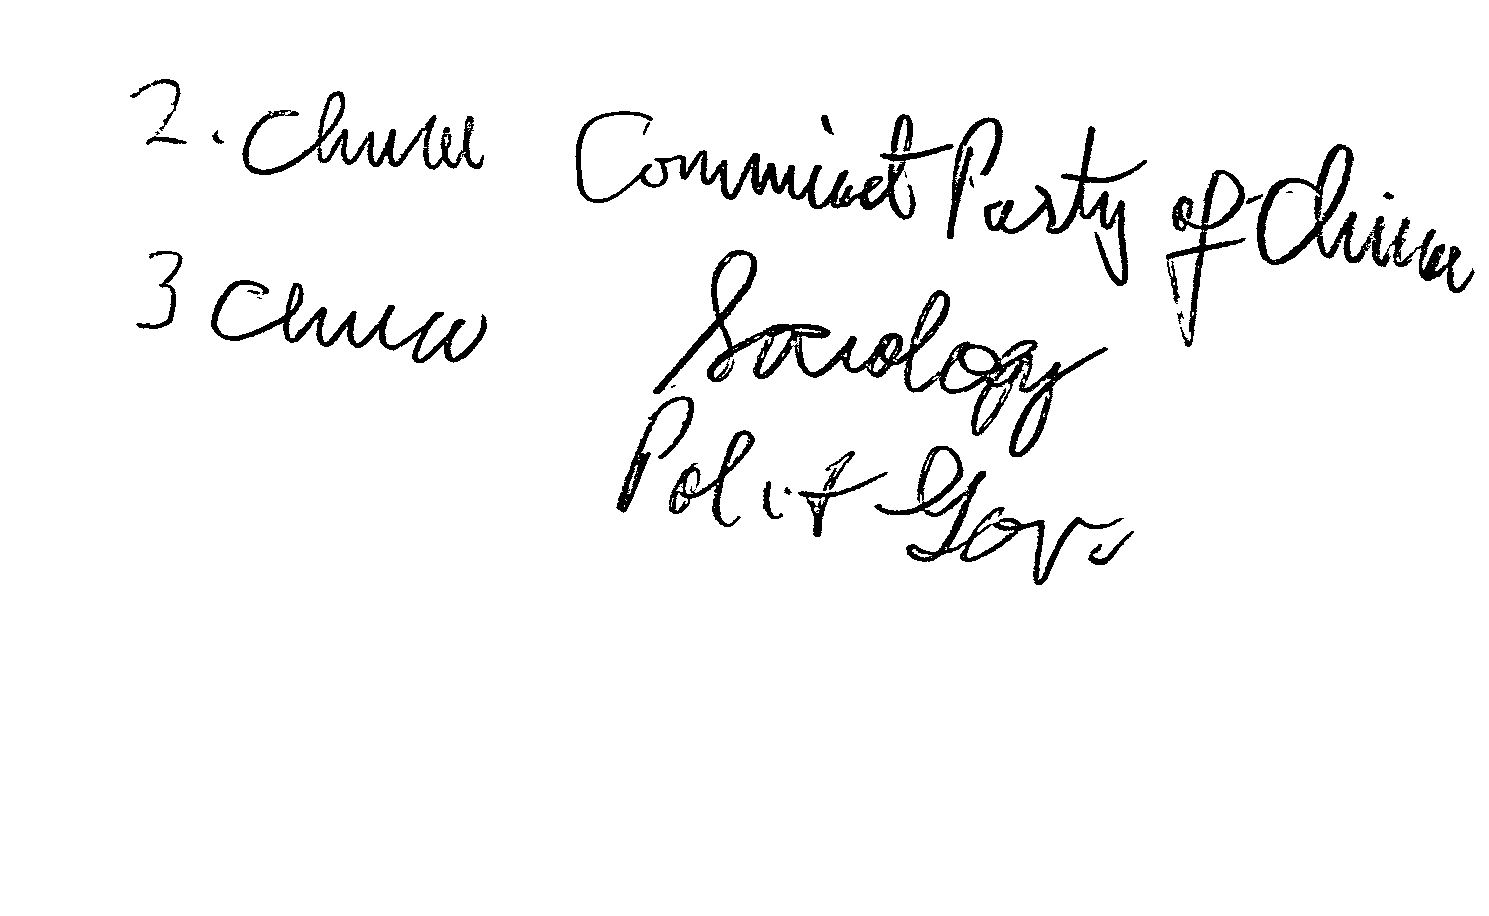 2. China Communist Party of China
3 China Sociology
Polit Gov.